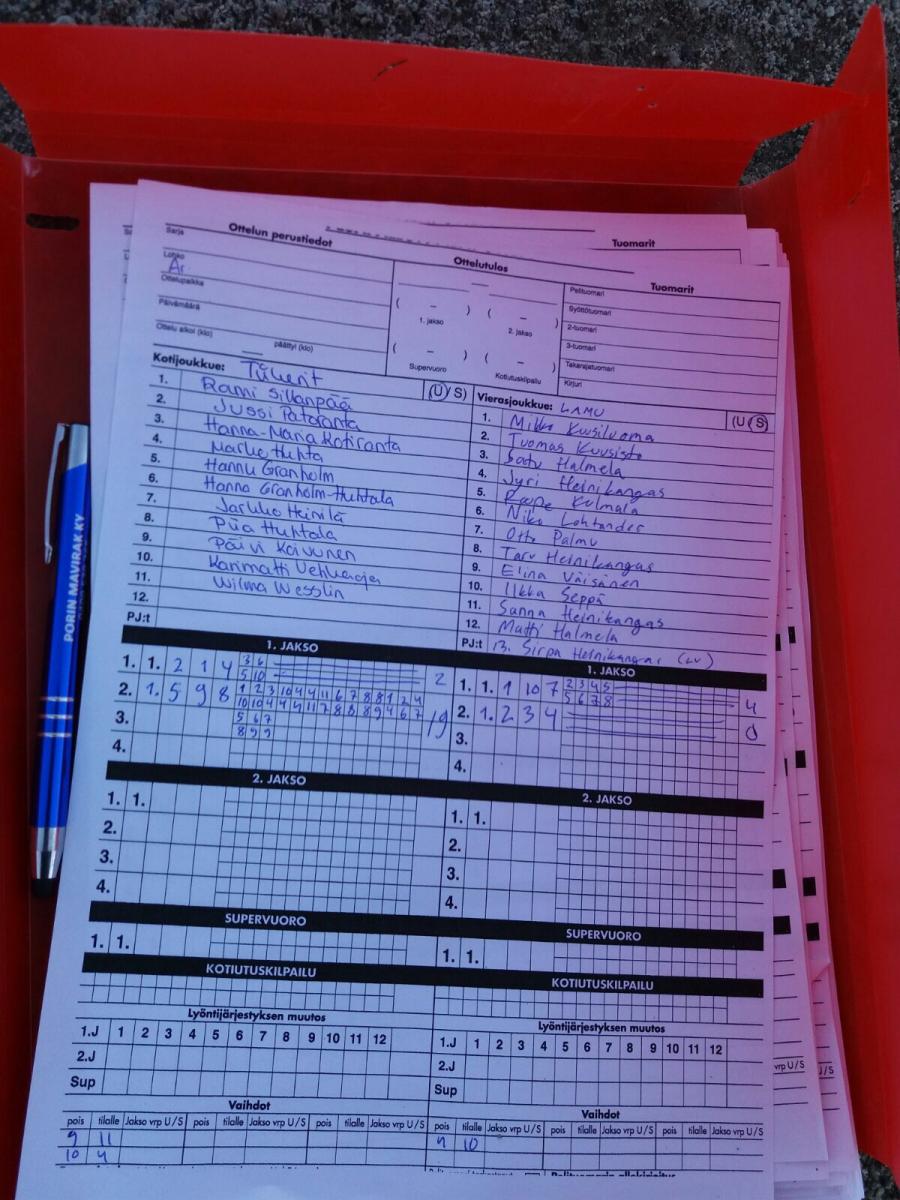 Tuomarit
Ottelun perustiedot
Ottelutulos
Tuomarit
Sarja
Lohko
Ottelupaikka
Päivämäärä
Ottelu alkoi (klo)
päättyi (klo)
( – ) ( – )
1. jakso 2. jakso
( – ) ( – )
Supervuoro Kotiutuskilpailu
Pelituomari
Syöttötuomari
2-tuomari
3-tuomari
Takarajatuomari
Kirjuri
Kotijoukkue: Tiikerit (U/S)
1. Rami Sillanpää
2. Jussi Patoranta
3. Hanna-Maria Kotiranta
4. Marke Huhta
5. Hannu Granholm
6. Hanna Granholm-Huhtala
7. Jarkko Heinilä
8. Piia Huhtala
9. Päivi Koivunen
10. Karimatti Vehkaoja
11. Wilma Wesslin
12.
PJ:t
Vierasjoukkue: LAMU (U/S)
1. Mikko Kuusiluoma
2. Tuomas Kuusisto
3. Satu Halmela
4. Jyri Heinikangas
5. Roope Kulmala
6. Niko Lohtander
7. Otto Palmu
8. Taru Heinikangas
9. Elina Väisänen
10. Ilkka Seppä
11. Sanna Heinikangas
12. Matti Halmela
PJ:t 13. Sirpa Heinikangas (LV)
1. JAKSO
1. 1. 2 1 4 3 6 2
5 10
2. 1. 5 9 8 1 2 3 10 4 4 11 6 7 8 8 1 2 4 19
10 10 4 4 4 11 7 8 8 8 9 4 6 7
3. 5 6 7
8 9 9
4.
1. JAKSO
1. 1. 1 10 7 2 3 4 5 4
5 6 7 8
2. 1. 2 3 4 0
3.
4.
2. JAKSO
1. 1.
2.
3.
4.
2. JAKSO
1. 1.
2.
3.
4.
SUPERVUORO
1. 1.
SUPERVUORO
1. 1.
KOTIUTUSKILPAILU
KOTIUTUSKILPAILU
Lyöntijärjestyksen muutos
1.J 1 2 3 4 5 6 7 8 9 10 11 12
2.J
Sup
Lyöntijärjestyksen muutos
1.J 1 2 3 4 5 6 7 8 9 10 11 12
2.J
Sup
Vaihdot
pois tilalle Jakso vrp U/S pois tilalle Jakso vrp U/S pois tilalle Jakso vrp U/S
9 11
10 4
Vaihdot
pois tilalle Jakso vrp U/S pois tilalle Jakso vrp U/S pois tilalle Jakso vrp U/S
10
vrp U/S
U/S
PORIN MAVIRAK KY